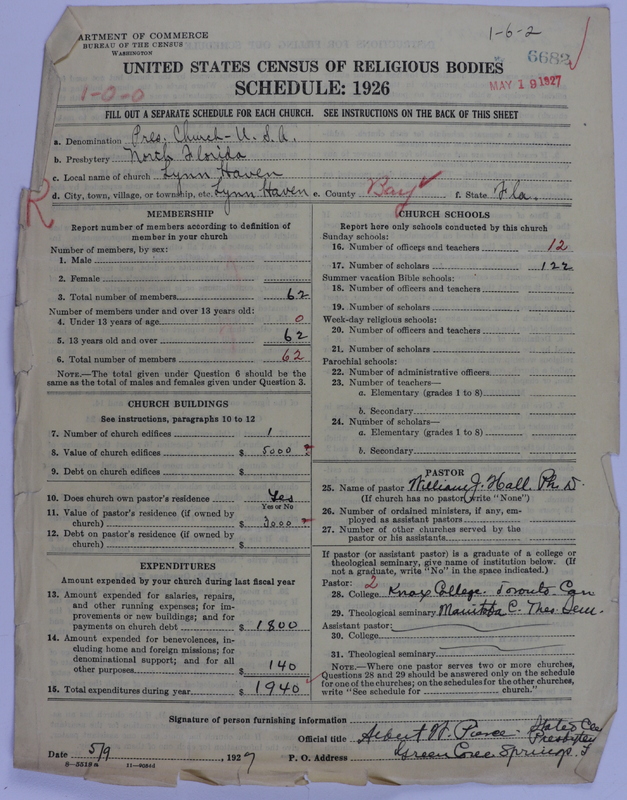 ARTMENT OF COMMERCE
BUREAU OF THE CENSUS
WASHINGTON
1-6-2
6682
MAY 19 1927
UNITED STATES CENSUS OF RELIGIOUS BODIES
SCHEDULE: 1926
1-0-0
FILL OUT A SEPARATE SCHEDULE FOR EACH CHURCH. SEE INSTRUCTIONS ON THE BACK OF THIS SHEET
a. Denomination Pres. Church-U.S.A.
b. Presbytery North Florida
c. Local name of church Lynn Haven
d. City, town, village, or township, etc. Lynn Haven e. County Bay f. State Fla.
R
MEMBERSHIP
Report number of members according to definition of member in your church
Number of members, by sex:
1. Male
2. Female
3. Total number of members 62
Number of members under and over 13 years old:
4. Under 13 years of age 0
5. 13 years old and over 62
6. Total number of members 62
NOTE.—The total given under Question 6 should be the same as the total of males and females given under Question 3.
CHURCH BUILDINGS
See instructions, paragraphs 10 to 12
7. Number of church edifices 1
8. Value of church edifices $ 5000
9. Debt on church edifices $
10. Does church own pastor's residence Yes
Yes or No
11. Value of pastor's residence (if owned by church) $ 3000
12. Debt on pastor's residence (if owned by church) $
EXPENDITURES
Amount expended by your church during last fiscal year
13. Amount expended for salaries, repairs, and other running expenses; for improvements or new buildings; and for payments on church debt $ 1800
14. Amount expended for benevolences, including home and foreign missions; for denominational support; and for all other purposes $ 140
15. Total expenditures during year $ 1940
CHURCH SCHOOLS
Report here only schools conducted by this church
Sunday schools:
16. Number of officers and teachers 12
17. Number of scholars 122
Summer vacation Bible schools:
18. Number of officers and teachers
19. Number of scholars
Week-day religious schools:
20. Number of officers and teachers
21. Number of scholars
Parochial schools:
22. Number of administrative officers
23. Number of teachers—
a. Elementary (grades 1 to 8)
b. Secondary
24. Number of scholars—
a. Elementary (grades 1 to 8)
b. Secondary
PASTOR
25. Name of pastor William J. Hall Ph D.
(If church has no pastor, write "None")
26. Number of ordained ministers, if any, employed as assistant pastors
27. Number of other churches served by the pastor or his assistants
If pastor (or assistant pastor) is a graduate of a college or theological seminary, give name of institution below. (If not a graduate, write "No" in the space indicated.)
Pastor: 2
28. College Knox College. Toronto Can
29. Theological seminary Manitoba C. Theo Sem.
Assistant pastor:
30. College
31. Theological seminary
NOTE.—Where one pastor serves two or more churches, Questions 28 and 29 should be answered only on the schedule for one of the churches; on the schedules for the other churches, write "See schedule for church."
Signature of person furnishing information
Official title Albert W. Pierce. Stated Cle
Presbytery
Date 5/9, 1927 P. O. Address Green Cove Springs. F
8-5519a 11-9034d